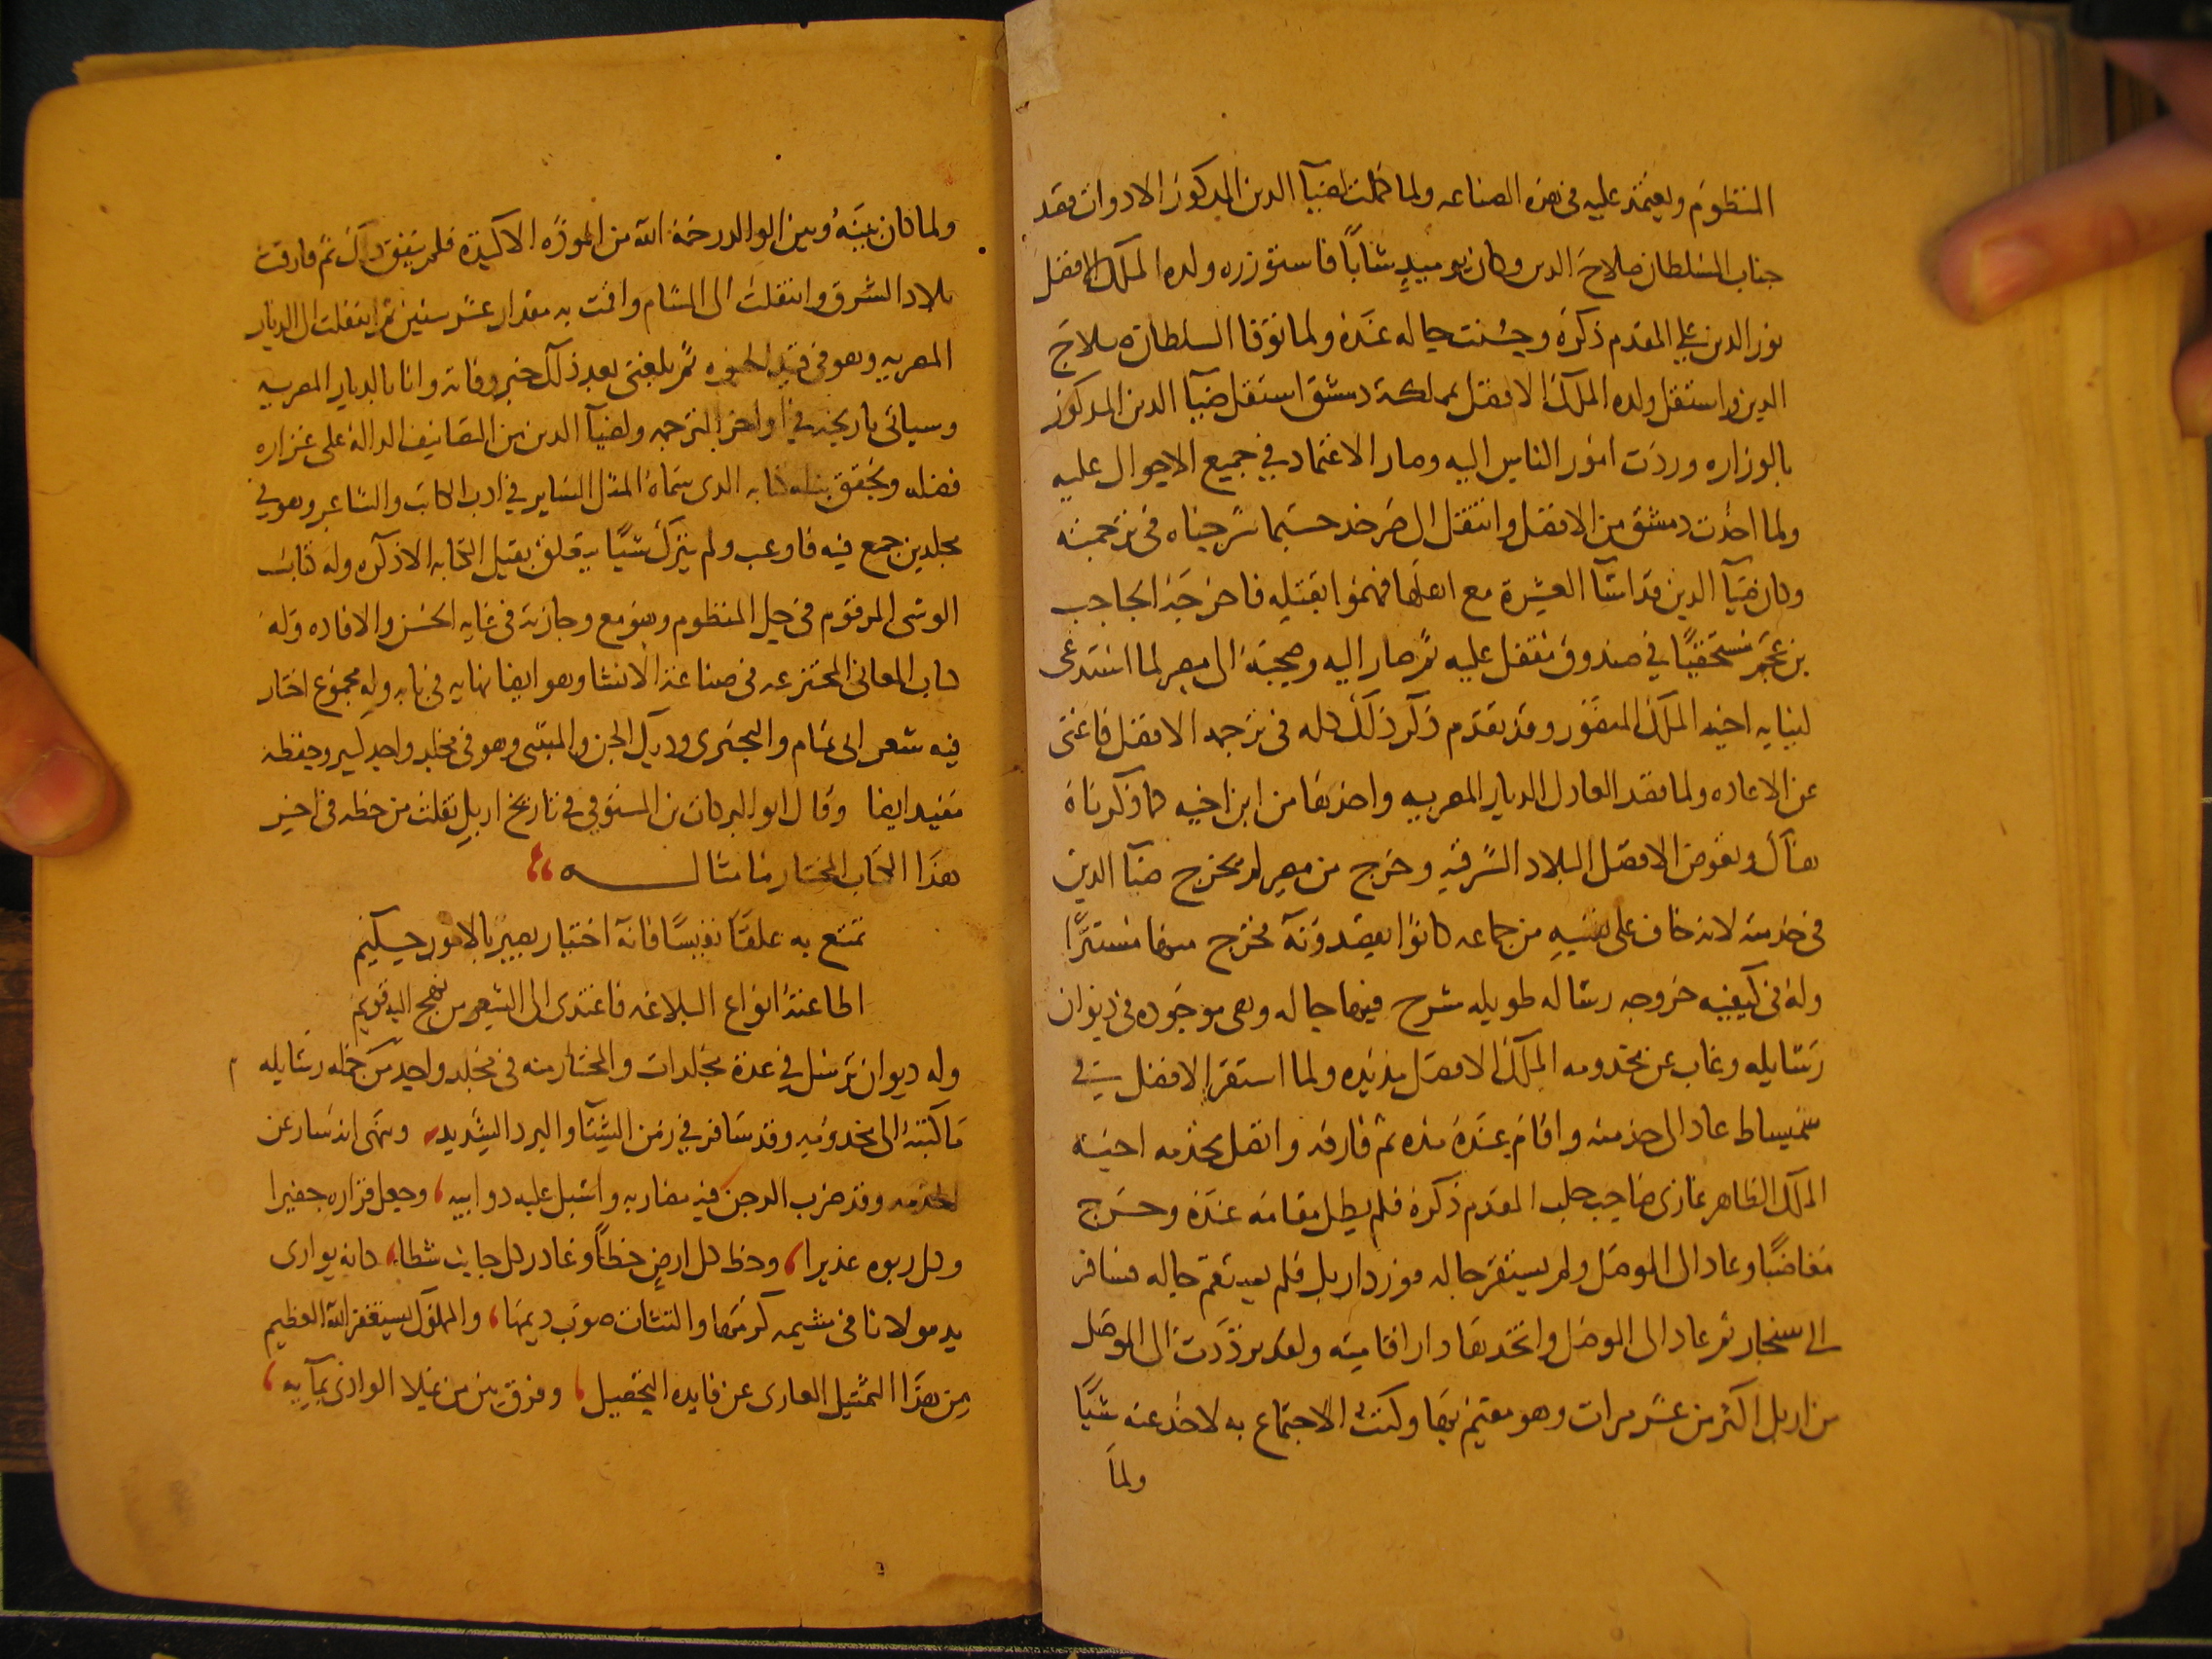 المنظوم ويعتمد عليه في هذه الصناعه ولما كملت لضيآ الدين المذكور الادوات قصد
جناب السلطان صلاح الدين وكان يوميذٍ شابًا فاستوزره ولده الملك الافضل
نور الدين علي المقدم ذكره وحسنت حاله عنده ولما توفا السلطان صلاح
الدين واستقل ولده الملك الافضل بمملكة دمشق استقل ضيآ الدين المذكور
بالوزاره وردت امور الناس اليه وصار الاعتماد في جميع الاحوال عليه
ولما اخذت دمشق من الافضل وانتقل الى صرخد حسبما شرحناه في ترجمته
وكان ضيآ الدين قد اسآ العشرة مع اهلها فهموا بقتله فاخرجه الحاجب
بن عجم مستخفيًا في صندوق مقفل عليه ثم صار اليه وصحبه الى مصر لما استدعى
لنيابه اخيه الملك المنصور وقد تقدم ذكر ذلك كله في ترجمه الافضل فاغنى
عن الاعاده ولما قصد العادل الديار المصريه واخذها من ابن اخيه كما ذكرناه
هناك وتعوض الافضل البلاد الشرقيه وخرج من مصر لم يخرج ضيآ الدين
في خدمته لانه خاف على نفسه من جماعه كانوا يقصدونه فخرج منها مستترًا
وله في كيفيه خروجه رساله طويله شرح فيها حاله وهي موجوده في ديوان
رسايله وغاب عن مخدومه الملك الافضل مديده ولما استقر الافضل في
سميساط عاد الى خدمته واقام عنده مده ثم فارقه واتصل بخدمه اخيه
الملك الظاهر غازي صاحب حلب المقدم ذكره فلم يطل مقامه عنده وخرج
مغاضبًا وعاد الى الموصل ولم يستقر حاله فورد اربل فلم يستقم حاله فسافر
الى سنجار ثم عاد الى الموصل واتخذها دار اقامته ولقد ترددت الى الموصل
من اربل اكثر من عشر مرات وهو مقيم بها وكنت الاجتماع به لاخذ عنه شيًا
ولما
ولما كان بينه وبين الوالد رحمة الله من المودة الاكيده فلم يتفق ذلك ثم فارقت
بلاد الشرق وانتقلت الى الشام واقمت به مقدار عشر سنين ثم انتقلت الى الديار
المصريه وهو في قيد الحيوه ثم بلغني بعد ذلك خبر وفاته وانا بالديار المصريه
وسياتي تاريخه في اواخر الترجمه ولضيآ الدين من التصانيف الدالة على غزاره
فضله وتحقق نبله كتابه الذي سماه المثل الساير في ادب الكاتب والشاعر وهو في
مجلدين جمع فيه فاوعب ولم يترك شيًا يتعلق بفن الكتابه الا ذكره وله كتاب
الوشى المرقوم في حل المنظوم وهو مع وجازته في غايه الحسن والافاده وله
كتاب المعانى المخترعه في صناعة الانشا وهو ايضا نهايه في بابه وله مجموع اختار
فيه شعر ابى تمام والبحترى وديك الجن والمتنبى وهو في مجلد واحد كبير وحفظه
مفيد ايضا وقال ابو البركات بن المستوفي في تاريخ اربل نقلت من خطه في اخر
هذا الكتاب المختار ما مثالــــه
تمتع به علقًا نفيسًا فانه اختيار بصير بالامور حكيم
اطاعته انواع البلاغه فاهتدى الى الشعر من نهج اليه قويم
وله ديوان ترسل في عدة مجلدات والمختار منه في مجلد واحد من جمله رسايله
ما كتبه الى مخدومه وقد سافر في زمن الشتآ والبرد الشديد وينهى انه سار عن
الخدمه وقد ضرب الدجن فيه مضاربه واسبل عليه ذوايبه، وجعل قراره حفيرا
وكل ربوه غديرا، وخط كل ارضٍ خطًا وغادر كل جانب شطا، كانه يوارى
يد مولانا في شيمه كرمها والتثات صوب ديمتها، والمملوك يستغفر الله العظيم
من هذا التمثيل العارى عن فايده التحصيل، وفرق بين من يملا الوادى بمآيه،